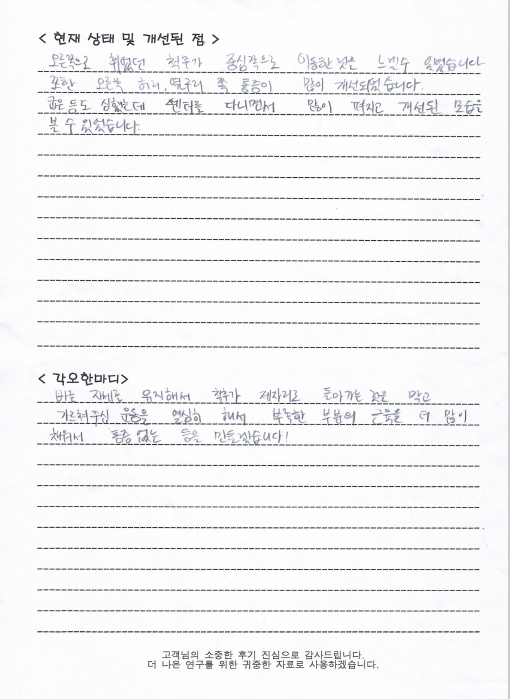 < 현재 상태 및 개선된 점 >
오른쪽으로 휘었던 척추가 중심쪽으로 이동한 것은 느낄수 있었습니다
또한 오른쪽 허리, 옆구리 쪽 통증이 많이 개선되었습니다.
굽은등도 심했는데 센터를 다니면서 많이 펴지고 개선된 모습을
볼 수 있었습니다.
< 각오한마디>
바른 자세로 유지해서 척추가 제자리로 돌아가는 것을 막고
가르쳐주신 운동을 열심히 해서 부족한 부위의 근육을 더 많이
채워서 통증 없는 등을 만들겠습니다!
고객님의 소중한 후기 진심으로 감사드립니다.
더 나은 연구를 위한 귀중한 자료로 사용하겠습니다.